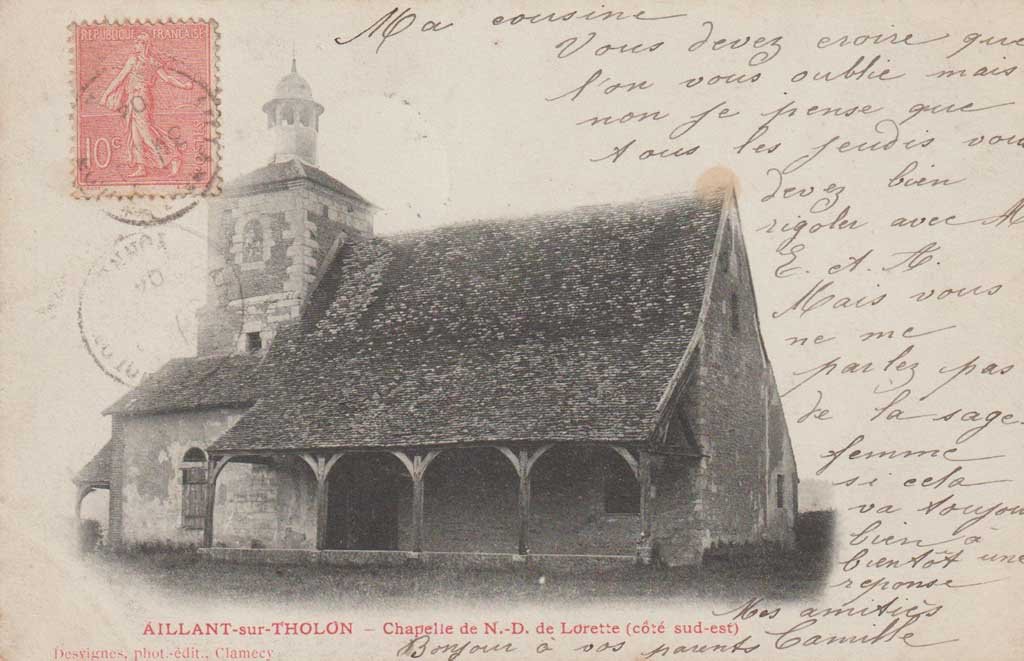 REPUBLIQUE FRANÇAISE
10c
Ma cousine
Vous devez croire que
l'on vous oublie mais
non je pense que
tous les jeudis vous
devez bien
rigoler avec M
E. et A.
Mais vous
ne me
parlez pas
de la sage-
femme
si cela
va toujours
bien à
bientôt une
reponse
Mes amitiés
Camille
Bonjour à vos parents
AILLANT-sur-THOLON – Chapelle de N.-D. de Lorette (côté sud-est)
Desvignes, phot.-édit., Clamecy